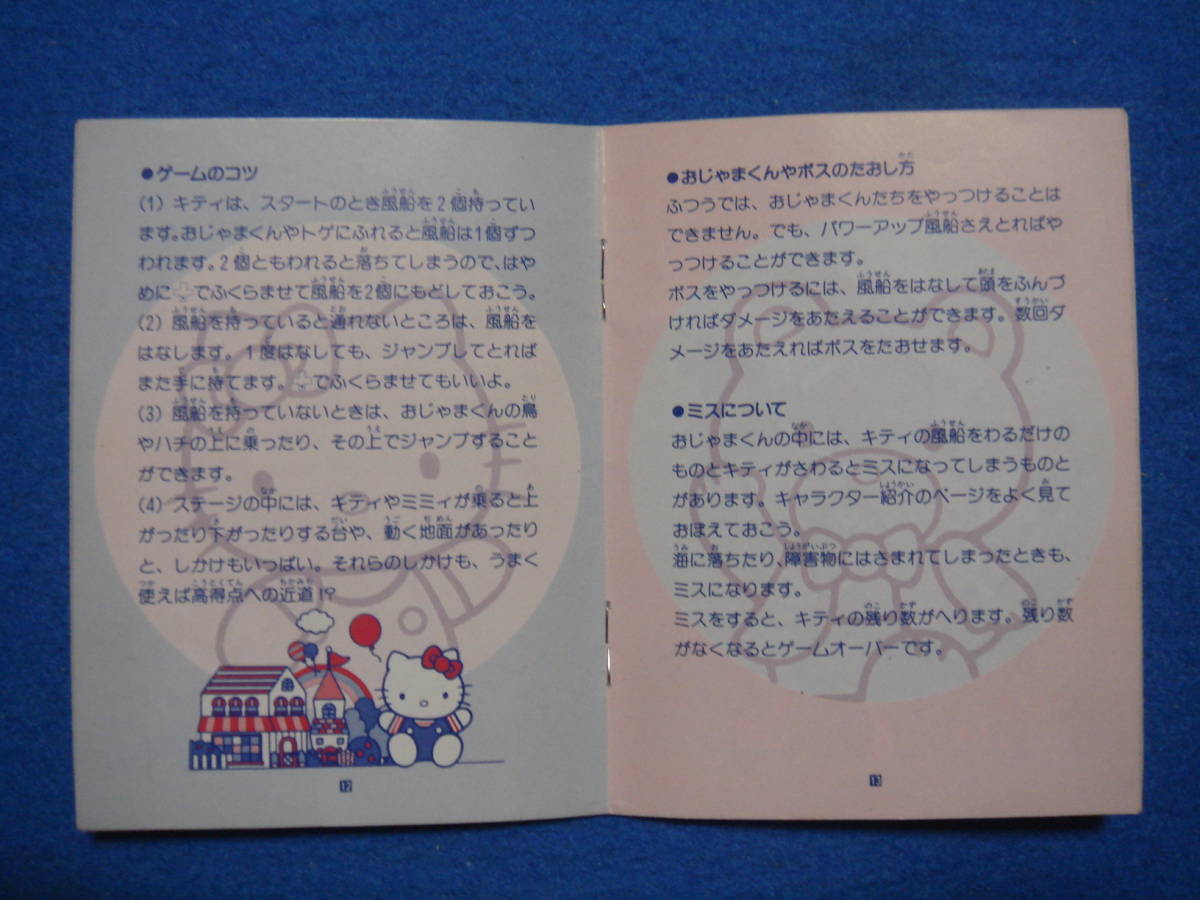 ●ゲームのコツ
(1) キティは、スタートのとき風船を2個持ってい
ます。おじゃまくんやトゲにふれると風船は1個ずつ
われます。2個ともわれると落ちてしまうので、はや
めに✚でふくらませて風船を2個にもどしておこう。
(2) 風船を持っていると通れないところは、風船を
はなします。1度はなしても、ジャンプしてとれば
また手に持てます。✚でふくらませてもいいよ。
(3) 風船を持っていないときは、おじゃまくんの鳥
やハチの上に乗ったり、その上でジャンプすること
ができます。
(4) ステージの中には、キティやミミィが乗ると上
がったり下がったりする台や、動く地面があったり
と、しかけもいっぱい。それらのしかけも、うまく
使えば高得点への近道!?
12
●おじゃまくんやボスのたおし方
ふつうでは、おじゃまくんたちをやっつけることは
できません。でも、パワーアップ風船さえとればや
っつけることができます。
ボスをやっつけるには、風船をはなして頭をふんづ
ければダメージをあたえることができます。数回ダ
メージをあたえればボスをたおせます。
●ミスについて
おじゃまくんの中には、キティの風船をわるだけの
ものとキティがさわるとミスになってしまうものと
があります。キャラクター紹介のページをよく見て
おぼえておこう。
海に落ちたり、障害物にはさまれてしまったときも、
ミスになります。
ミスをすると、キティの残り数がへります。残り数
がなくなるとゲームオーバーです。
13